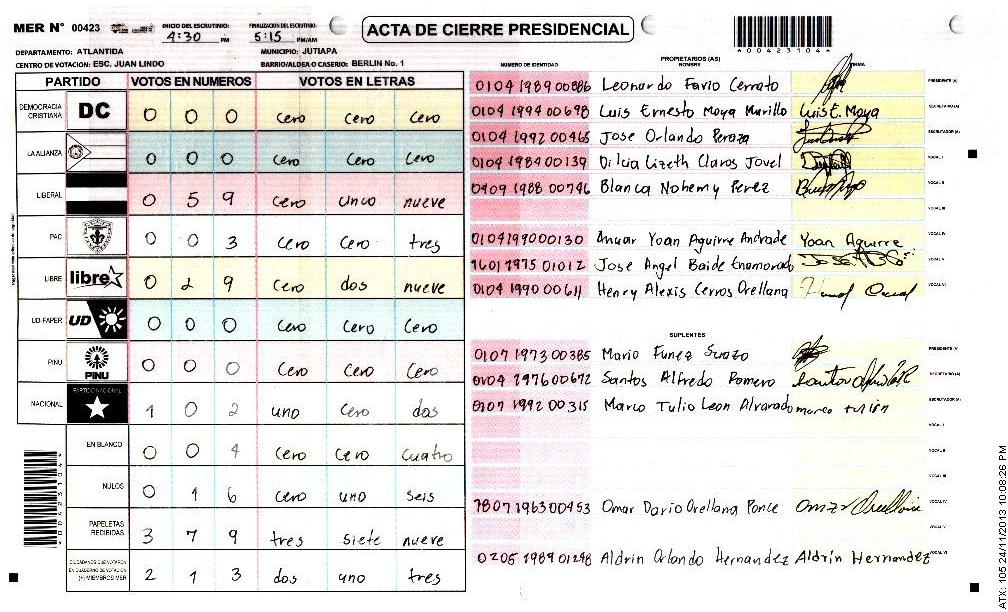 MER N° 00423
INICIO DEL ESCRUTINIO: 4:30 PM
FINALIZACION DEL ESCRUTINIO: 5:15 PM/AM
ACTA DE CIERRE PRESIDENCIAL
*00423104*
DEPARTAMENTO: ATLANTIDA
MUNICIPIO: JUTIAPA
CENTRO DE VOTACION: ESC. JUAN LINDO
BARRIO/ALDEA O CASERIO: BERLIN No. 1
PARTIDO VOTOS EN NUMEROS VOTOS EN LETRAS
DEMOCRACIA CRISTIANA DC 0 0 0 cero cero cero
LA ALIANZA 0 0 0 cero cero cero
LIBERAL 0 5 9 cero cinco nueve
PAC 0 0 3 cero cero tres
LIBRE libre 0 2 9 cero dos nueve
UD-FAPER UD 0 0 0 cero cero cero
PINU PINU 0 0 0 cero cero cero
NACIONAL PARTIDO NACIONAL 1 0 2 uno cero dos
EN BLANCO 0 0 4 cero cero cuatro
NULOS 0 1 6 cero uno seis
PAPELETAS RECIBIDAS 3 7 9 tres siete nueve
CIUDADANOS QUE VOTARON EN CUADERNO DE VOTACION (+) MIEMBROS MER 2 1 3 dos uno tres
*00423104*
PROPIETARIOS (AS)
NUMERO DE IDENTIDAD NOMBRE FIRMA
0104 1989 00886 Leonardo Favio Cerrato PRESIDENTE (A)
0104 1994 00698 Luis Ernesto Moya Murillo Luis E. Moya SECRETARIO (A)
0104 1992 00465 Jose Orlando Peraza ESCRUTADOR (A)
0104 1984 00139 Dilcia Lizeth Claros Jovel VOCAL I
0409 1988 00746 Blanca Nohemy Perez VOCAL II
VOCAL III
0104 1990 00130 Anuar Yoan Aguirre Andrade Yoan Aguirre VOCAL IV
1601 1975 01012 Jose Angel Baide Enamorado VOCAL V
0104 1990 00611 Henry Alexis Cerros Orellana VOCAL VI
SUPLENTES
0107 1973 00385 Mario Funez Suazo PRESIDENTE (A)
0104 1976 00672 Santos Alfredo Romero SECRETARIO (A)
0107 1992 00315 Marco Tulio Leon Alvarado marco tulion ESCRUTADOR (A)
VOCAL I
VOCAL II
VOCAL III
1807 1963 00453 Omar Dario Orellana Ponce Omar Orellana VOCAL IV
VOCAL V
0205 1989 01248 Aldrin Orlando Hernandez Aldrín Hernandez VOCAL VI
ATX: 105 24/11/2013 10:08:26 PM